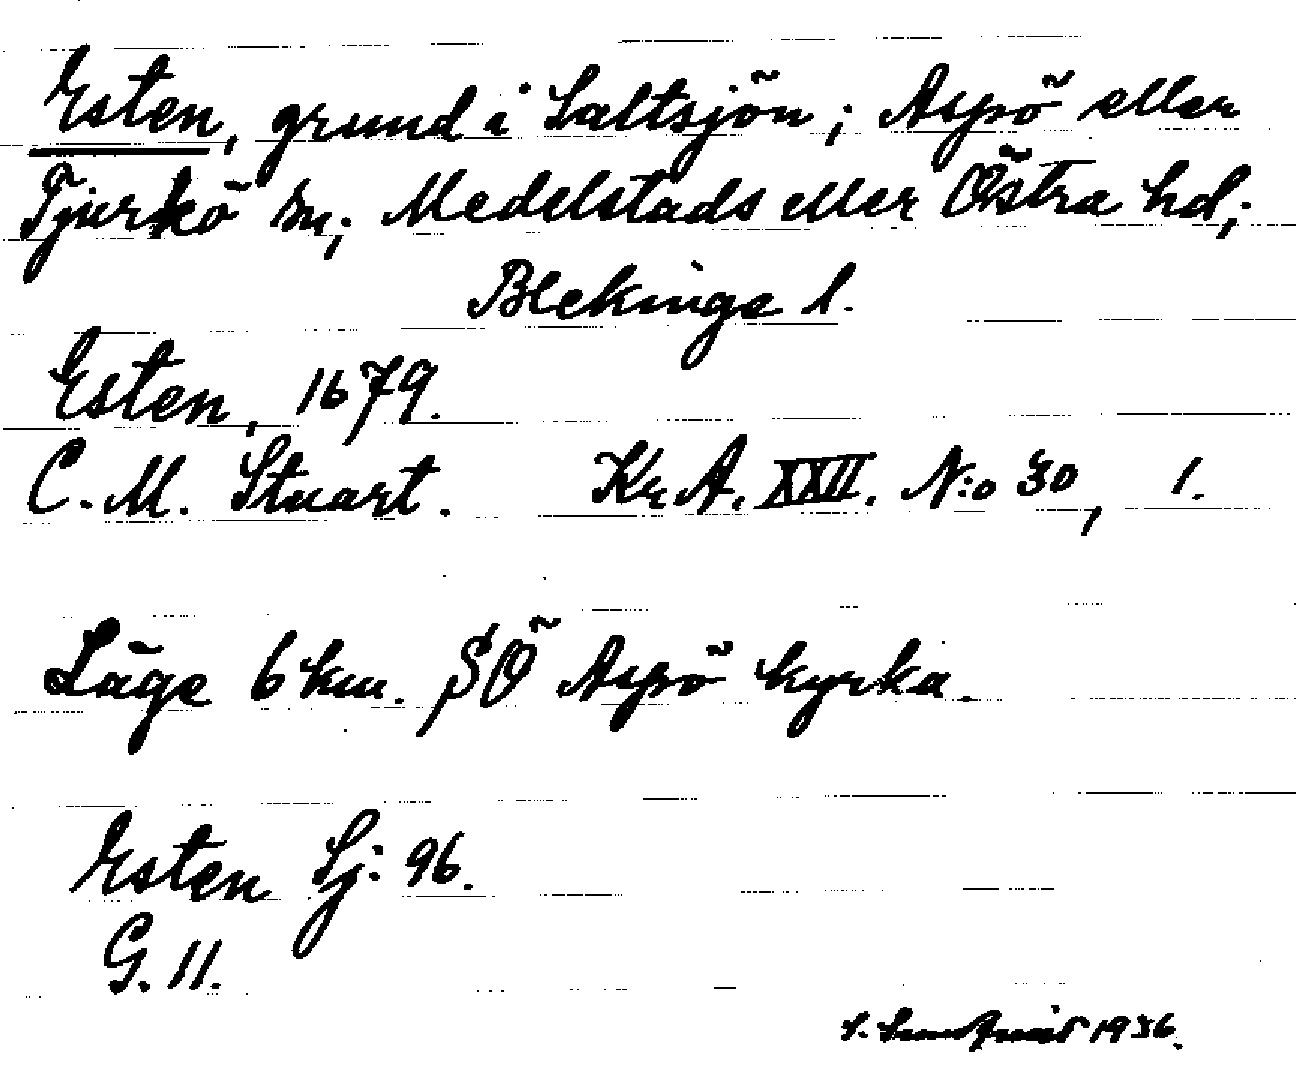 Esten, grund i Saltsjön; Aspö eller
Tjurkö sn; Medelstads eller Östra hd;
Blekinge l.
Esten, 1679.
C. M. Stuart. Kr. A. XXII. N:o 30, 1.
Läge 6 km. SÖ Aspö kyrka.
Esten Sj: 96.
G. 11.
1936.